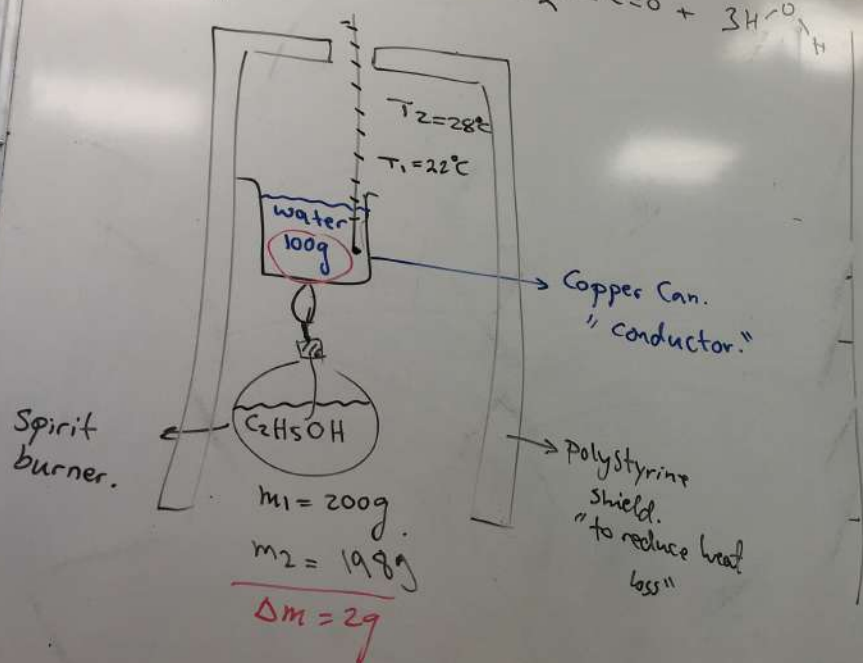 =O + 3H-O
H
T2=28°C
T1=22°C
water
100g
Copper Can.
"conductor."
Spirit
burner.
C2H5OH
polystyrine
shield.
"to reduce heat
loss"
m1 = 200g.
m2 = 198g
Δm = 2g